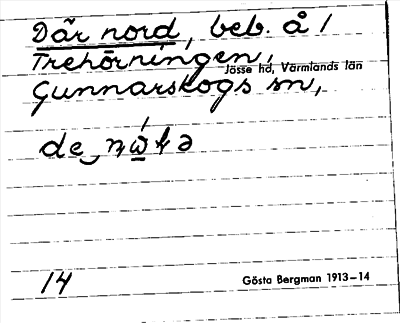 Där nord, beb. å 1
Trehörningen,
Jösse hd, Värmlands län
Gunnarskogs sn,
14
Gösta Bergman 1913–14